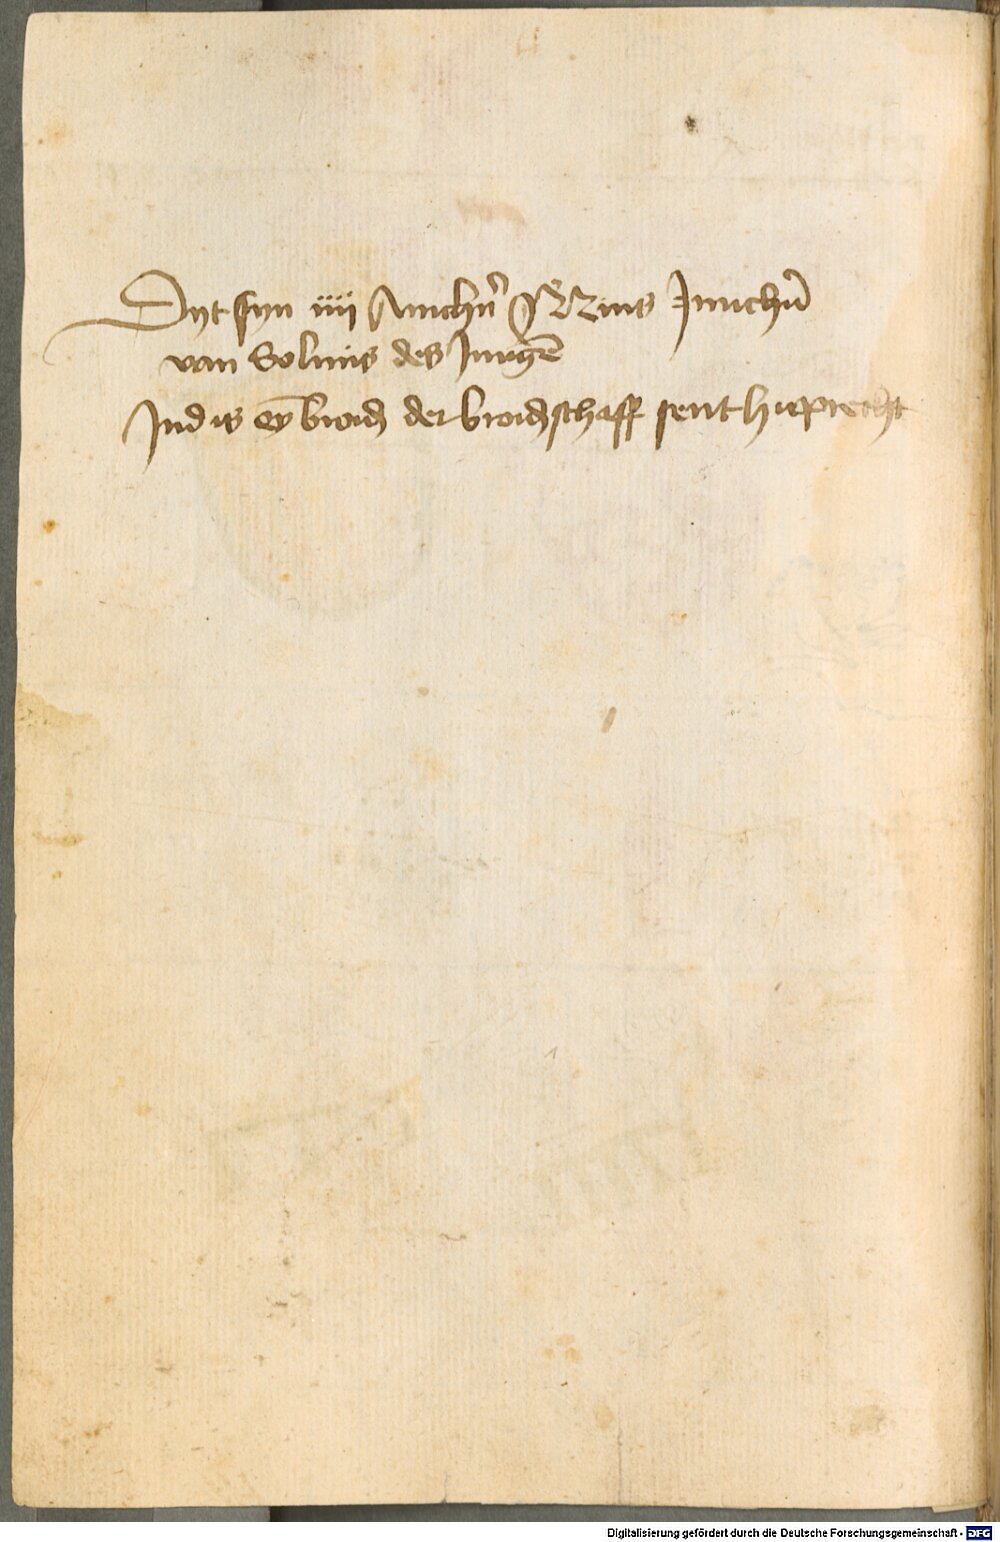 Dyt syn iiij Anichn̄ Jūchn̄
van Solms des Jungē
Ind is ey broid der broidschaff sent huprecht
Digitalisierung gefördert durch die Deutsche Forschungsgemeinschaft - DFG